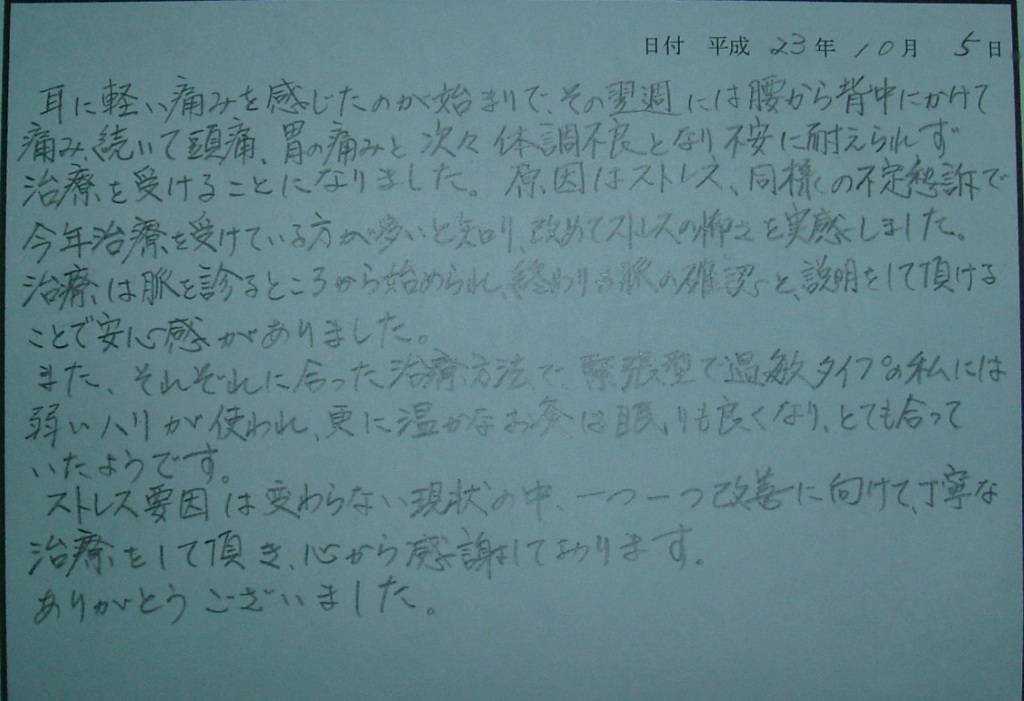 日付 平成 23年 10月 5日
耳に軽い痛みを感じたのが始まりで、その翌週には腰から背中にかけて
痛み、続いて頭痛、胃の痛みと次々体調不良となり不安に耐えられず
治療を受けることになりました。原因はストレス、同様の不定愁訴で
今年治療を受けている方が多いと知り、改めてストレスの怖さを実感しました。
治療は脈を診るところから始められ、終わりは脈の確認と、説明をして頂ける
ことで安心感がありました。
また、それぞれに合った治療方法で、緊張型で過敏タイプの私には
弱いハリが使われ、更に温かなお灸は眠りも良くなり、とても合って
いたようです。
ストレス要因は変わらない現状の中、一つ一つ改善に向けて、丁寧な
治療をして頂き、心から感謝しております。
ありがとうございました。